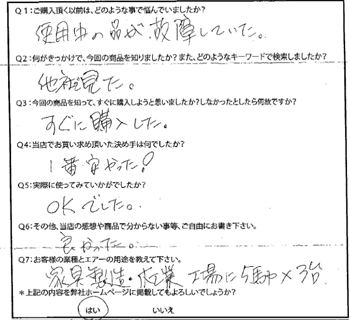 Q1:ご購入頂く以前は、どのような事で悩んでいましたか?
使用中の品が故障していた。
Q2:何がきっかけで、今回の商品を知りましたか?また、どのようなキーワードで検索しましたか?
他社見た。
Q3:今回の商品を知って、すぐに購入しようと思いましたか?しなかったとしたら何故ですか?
すぐに購入した。
Q4:当店でお買い求め頂いた決め手は何でしたか?
1番安かった!
Q5:実際に使ってみていかがでしたか?
OKでした。
Q6:その他、当店の感想や商品で分からない事等、ご自由にお書き下さい。
良かった。
Q7:お客様の業種とエアーの用途を教えて下さい。
家具製造・ 工場に5馬力×3台
*上記の内容を弊社ホームページに掲載してもよろしいでしょうか?
はい いいえ